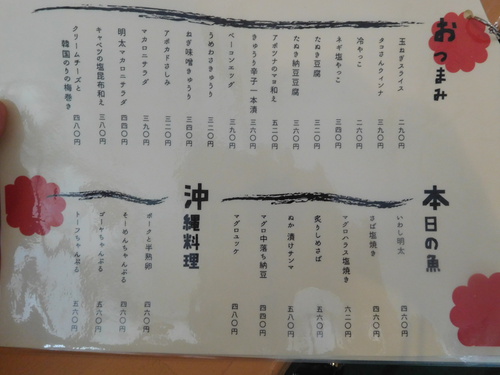 おつまみ
玉ねぎスライス 二九〇円
タコさんウィンナ 三九〇円
冷やっこ 二六〇円
ネギ塩やっこ 三四〇円
たぬき豆腐 三二〇円
たぬき納豆豆腐 三六〇円
アボツナのマヨ和え 五二〇円
きゅうり辛子一本漬 三六〇円
ベーコンエッグ 三九〇円
うめわさきゅうり 三二〇円
ねぎ味噌きゅうり 三四〇円
アボカドさしみ 三二〇円
マカロニサラダ 三九〇円
明太マカロニサラダ 四四〇円
キャベツの塩昆布和え 三八〇円
クリームチーズと
韓国のりの梅巻き 四八〇円
本日の魚
いわし明太 四六〇円
さば塩焼き 四六〇円
マグロハラス塩焼き 六二〇円
炙りしめさば 五六〇円
ぬか漬けサンマ 五八〇円
マグロ中落ち納豆 四六〇円
マグロユッケ 四八〇円
沖縄料理
ポークと半熟卵 四六〇円
そーめんちゃんぷる 四六〇円
ゴーヤちゃんぷる 五六〇円
トーフちゃんぷる 五六〇円